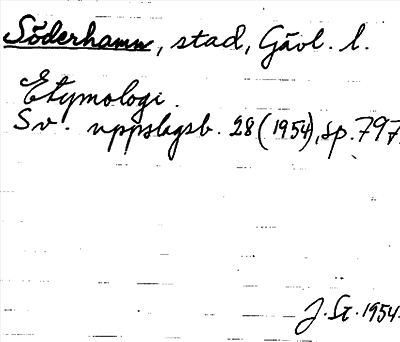 Söderhamn, stad, Gävl. l.
Etymologi.
Sv. uppslagsb. 28 (1954), sp. 797.
J. St. 1954.